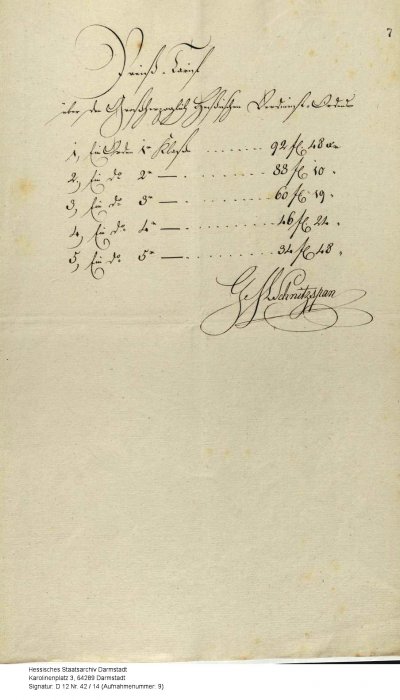 7
Preiß-Tarif
über den Großherzoglich Heßischen Verdienst-Orden
1, Ein Orden 1r Klaße ....... 92 fl 48 xr
2, Ein do 2r — ....... 88 fl 10 „
3, Ein do 3r — ....... 60 fl 19 „
4, Ein do 4r — ....... 46 fl 24 „
5, Ein do 5r — ....... 34 fl 48 „
Schnitzspan
Hessisches Staatsarchiv Darmstadt
Karolinenplatz 3, 64289 Darmstadt
Signatur: D 12 Nr. 42 / 14 (Aufnahmenummer: 9)